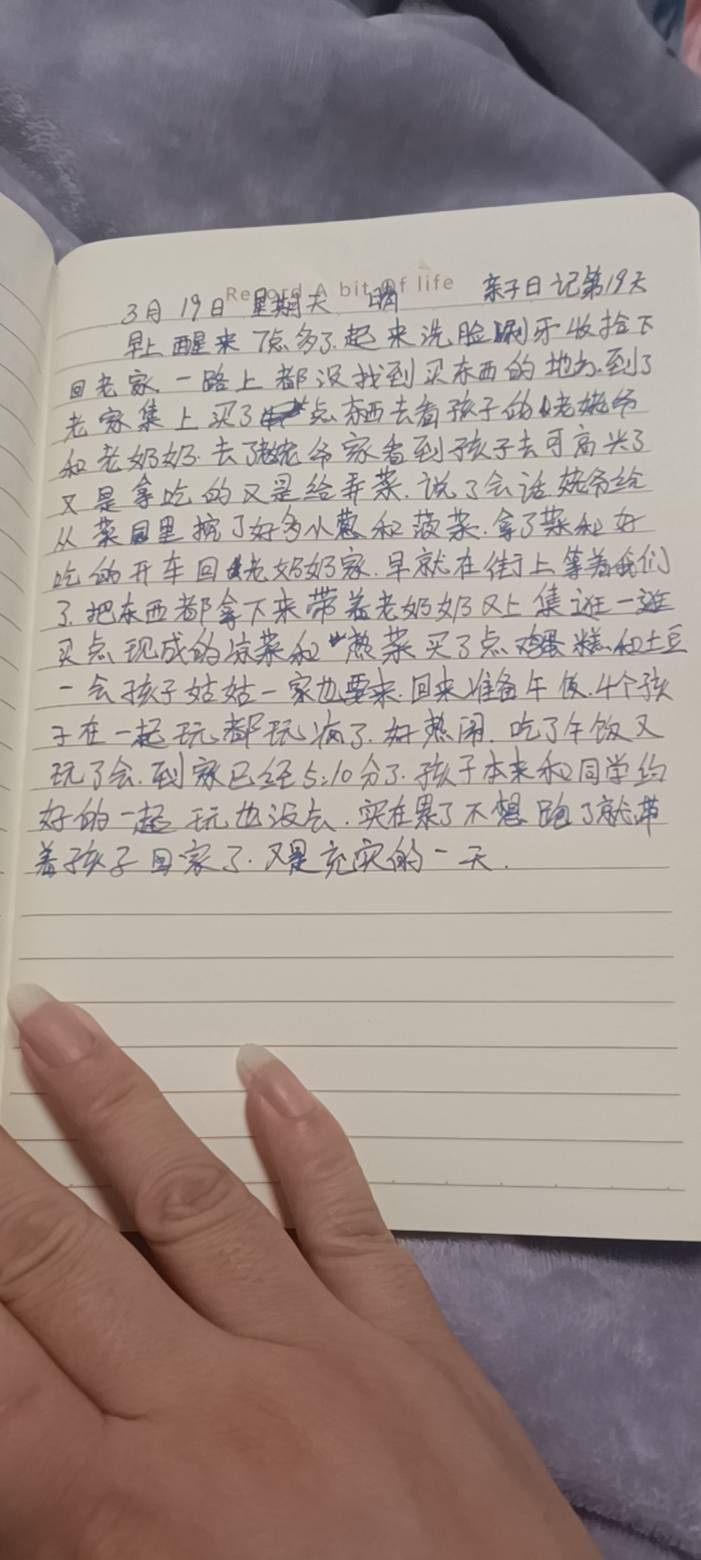 Record A bit of life
3月19日 星期天 晴 亲子日记第19天
早上醒来7点多了.起来洗脸刷牙收拾下
回老家.一路上都没找到买东西的地方.到了
老家集上买了点东西去看孩子的姥姥爷
和老奶奶.去了姥爷家看到孩子去可高兴了
又是拿吃的又是给弄菜.说了会话姥爷给
从菜园里挖了好多小葱和菠菜.拿了菜和好
吃的开车回老奶奶家.早就在街上等着我们
了.把东西都拿下来带着老奶奶又上集逛一逛
买点现成的凉菜和热菜买了点鸡蛋糕和土豆
一会孩子姑姑一家也要来.回来准备午饭.4个孩
子在一起玩都玩疯了.好热闹.吃了午饭又
玩了会.到家已经5:10分了.孩子本来和同学约
好的一起玩也没去.实在累了不想跑了就带
着孩子回家了.又是充实的一天.